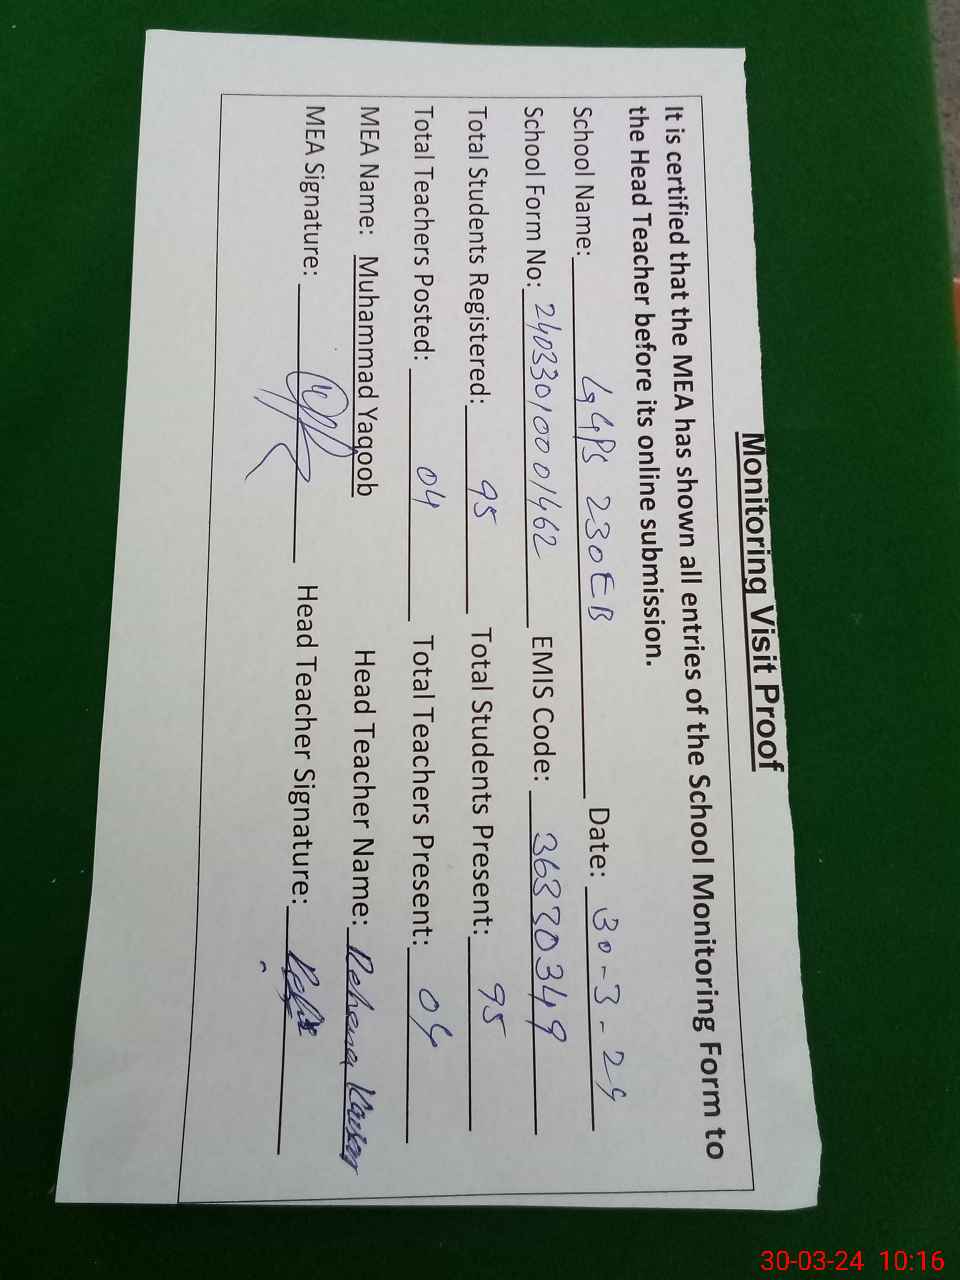 Monitoring Visit Proof
It is certified that the MEA has shown all entries of the School Monitoring Form to
the Head Teacher before its online submission.
School Name: GGPS 230EB Date: 30-3-24
School Form No: 24033010001462 EMIS Code: 36330349
Total Students Registered: 95 Total Students Present: 95
Total Teachers Posted: 04 Total Teachers Present: 04
MEA Name: Muhammad Yaqoob Head Teacher Name: Rehena Kausar
MEA Signature: Head Teacher Signature:
30-03-24 10:16